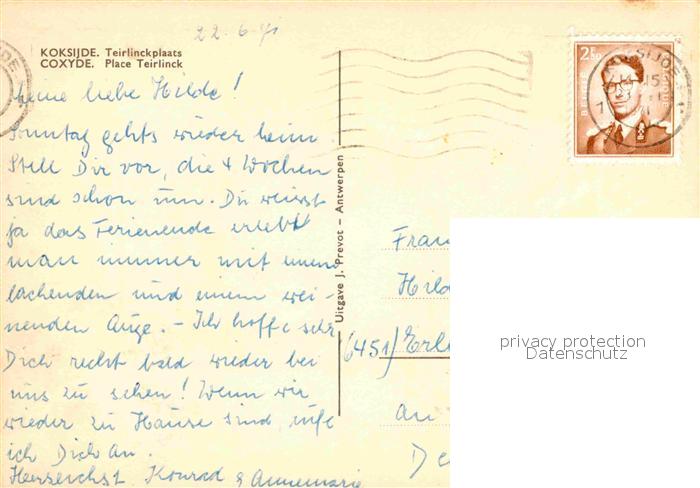 22.6.71
KOKSIJDE. Teirlinckplaats
COXYDE. Place Teirlinck
meine liebe Hilde!
Sonntag gehts wieder heim.
Stell Dir vor, die 4 Wochen
sind schon um. Du weisst
ja das Ferienende erlebt
man immer mit einem
lachenden und einem wei-
nenden Auge. - Ich hoffe sehr
Dich recht bald wieder bei
uns zu sehen! Wenn wir
wieder zu Hause sind rufe
ich Dich an.
Herzlichst Konrad & Annemarie
Uitgave J. Prevot - Antwerpen
KOKSIJDE
BELGIE BELGIQUE
Frau
Hild
(6451) Erl
an
De
privacy protection
Datenschutz